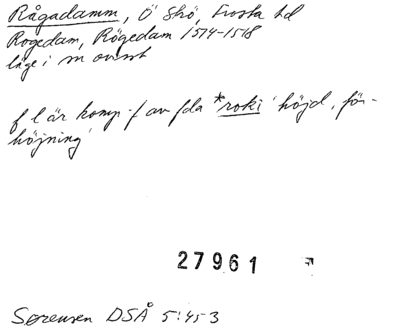 Rågadamm, Ö Skö, Frosta hd
Rogedam, Rögedam 1514-1518
läge i sn ovisst
f l är komp.f av fda *roki 'höjd, för-
höjning'
27961
Sørensen DSÅ 5:45-3